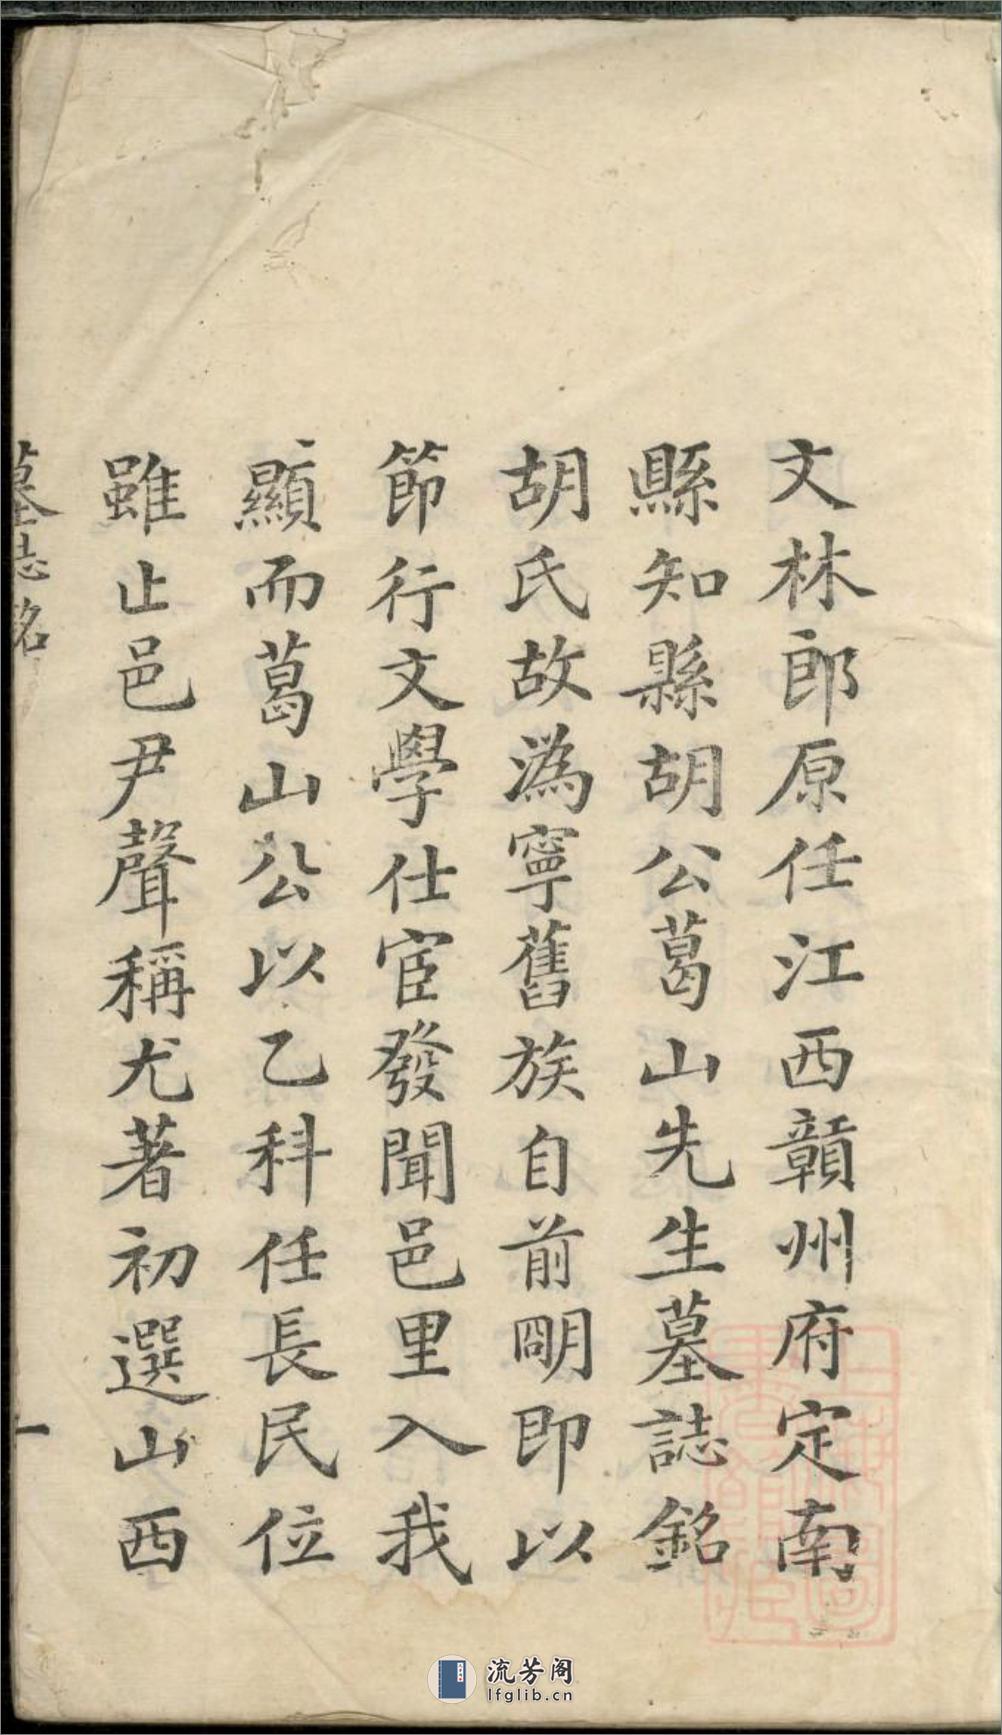 文林郎原任江西贛州府定南
縣知縣胡公葛山先生墓誌銘
胡氏故為寧舊族自前朙即以
節行文學仕宦發聞邑里入我
顯而葛山公以乙科任長民位
雖止邑尹聲稱尤著初選山西
墓志銘
一
流芳阁
lfglib.cn